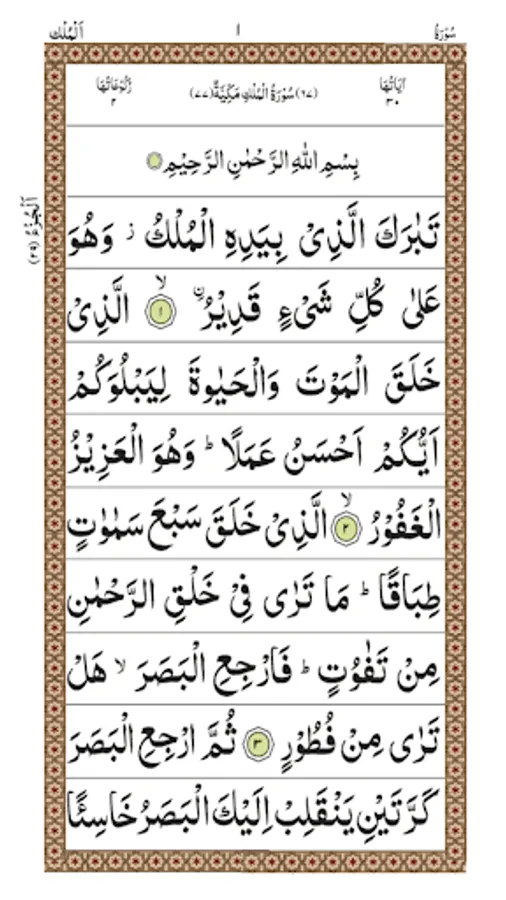 سُوْرَةُ ١ اَلْمُلْك
اٰيَاتُهَا ٣٠ (٦٧) سُوْرَةُ الْمُلْكِ مَكِّيَّةٌ (٧٧) رُكُوْعَاتُهَا ٢
اَلْجُزْءُ (٢٩)
بِسْمِ اللّٰهِ الرَّحْمٰنِ الرَّحِيْمِ
تَبٰرَكَ الَّذِىْ بِيَدِهِ الْمُلْكُ ز وَهُوَ
عَلٰى كُلِّ شَىْءٍ قَدِيْرُۨ ۙ ١ الَّذِىْ
خَلَقَ الْمَوْتَ وَالْحَيٰوةَ لِيَبْلُوَكُمْ
اَيُّكُمْ اَحْسَنُ عَمَلًا ؕ وَهُوَ الْعَزِيْزُ
الْغَفُوْرُ ۙ ٢ الَّذِىْ خَلَقَ سَبْعَ سَمٰوٰتٍ
طِبَاقًا ؕ مَا تَرٰى فِىْ خَلْقِ الرَّحْمٰنِ
مِنْ تَفٰوُتٍ ؕ فَارْجِعِ الْبَصَرَ ۙ هَلْ
تَرٰى مِنْ فُطُوْرٍ ٣ ثُمَّ ارْجِعِ الْبَصَرَ
كَرَّتَيْنِ يَنْقَلِبْ اِلَيْكَ الْبَصَرُ خَاسِئًا